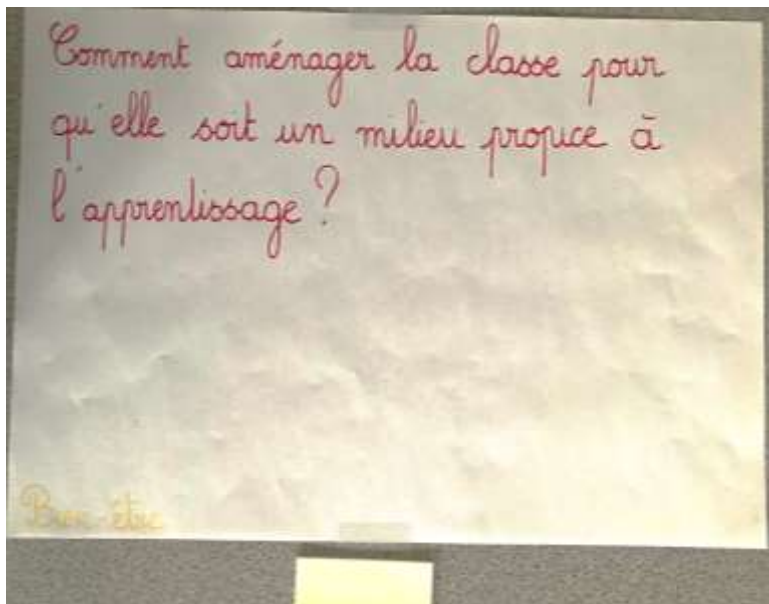 Comment aménager la classe pour
qu'elle soit un milieu propice à
l'apprentissage ?
Bien-être